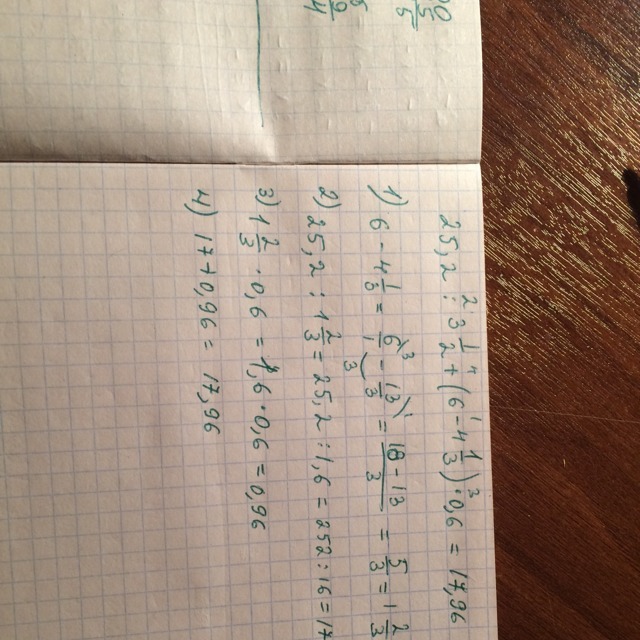 25,2 : 3 1/2 + (6 - 4 1/3) · 0,6 = 17,96
1) 6 - 4 1/3 = 6/1 - 13/3 = 18-13/3 = 5/3 = 1 2/3
2) 25,2 : 1 2/3 = 25,2 : 1,6 = 252 : 16 = 17
3) 1 2/3 · 0,6 = 1,6 · 0,6 = 0,96
4) 17 + 0,96 = 17,96